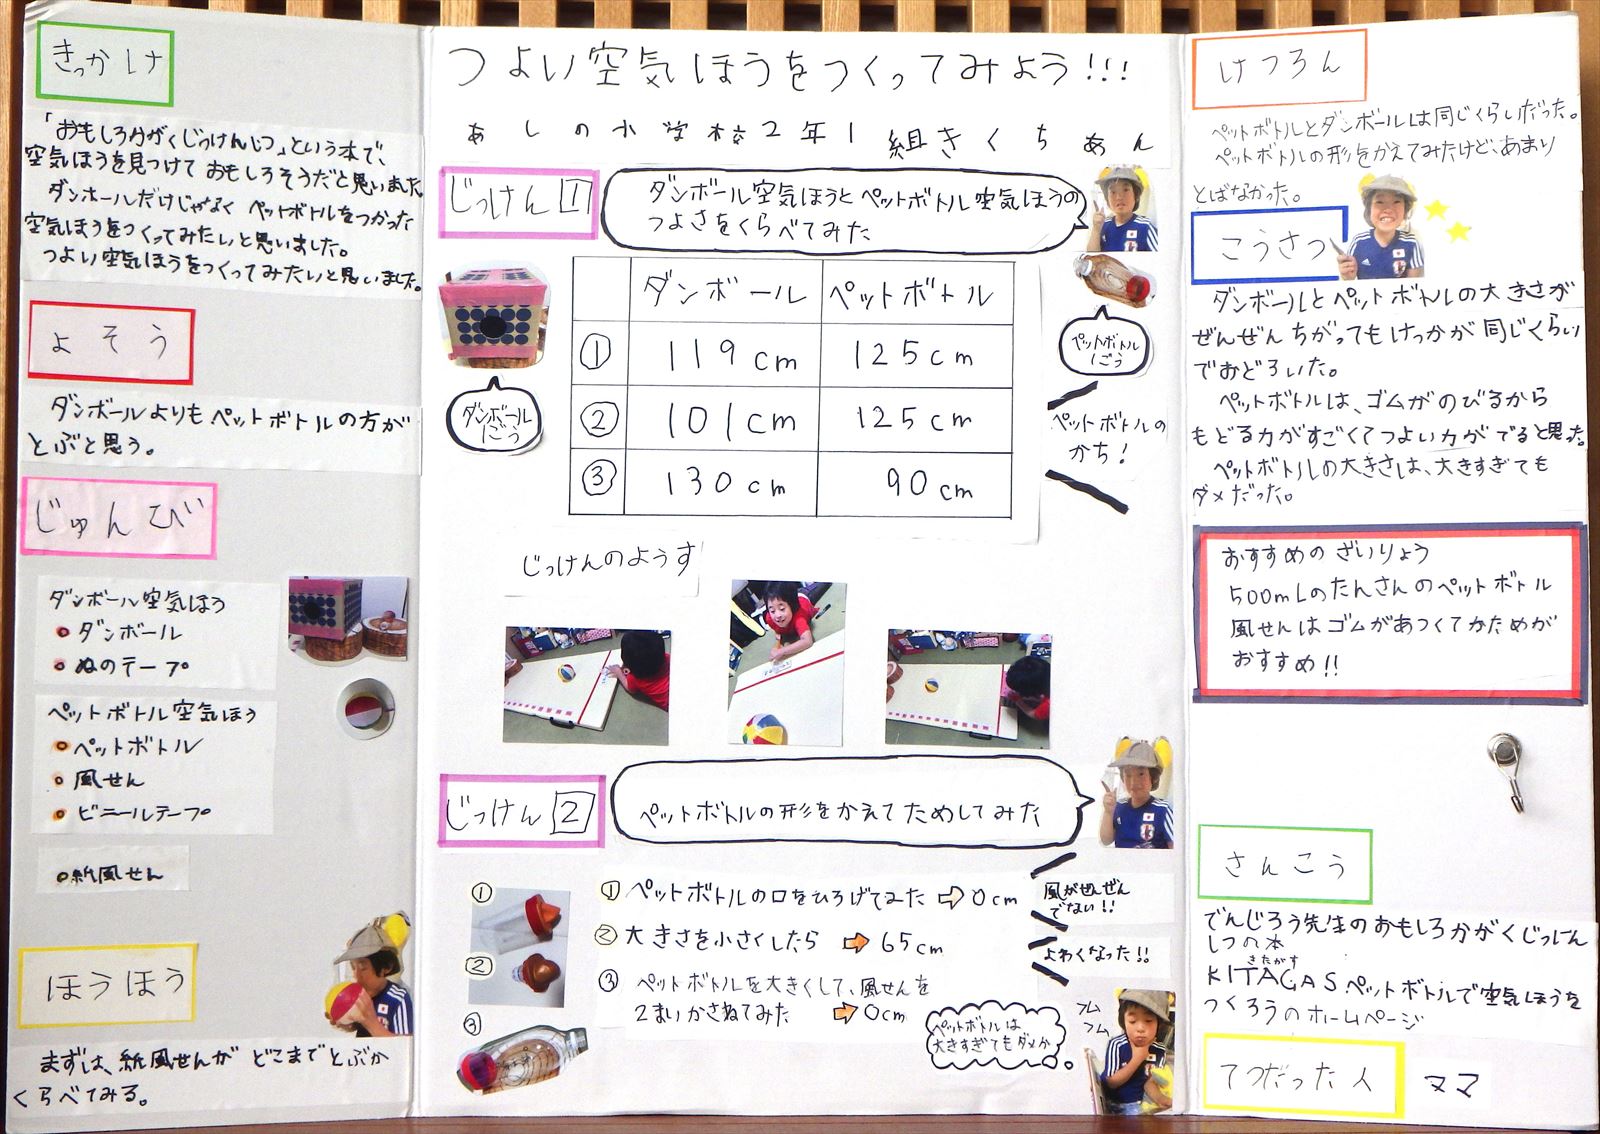 きっかけ
「おもしろかがくじっけんしつ」という本で、
空気ほうを見つけておもしろそうだと思いました。
ダンボールだけじゃなくペットボトルをつかった
空気ほうをつくってみたいと思いました。
つよい空気ほうをつくってみたいと思いました。
よそう
ダンボールよりもペットボトルの方が
とぶと思う。
じゅんび
ダンボール空気ほう
ダンボール
ぬのテープ
ペットボトル空気ほう
ペットボトル
風せん
ビニールテープ
紙風せん
ほうほう
まずは、紙風せんが どこまでとぶか
くらべてみる。
つよい空気ほうをつくってみよう!!!
あしの小学校2年1組きくちあん
じっけん1
ダンボール空気ほうとペットボトル空気ほうの
つよさをくらべてみた
ダンボール ペットボトル
① 119cm 125cm
② 101cm 125cm
③ 130cm 90cm
ダンボール
ごう
ペットボトル
ごう
ペットボトルの
かち!
じっけんのようす
じっけん2
ペットボトルの形をかえてためしてみた
①
②
③
①ペットボトルの口をひろげてみた⇨0cm
風がぜんぜん
でない!!
②大きさを小さくしたら⇨65cm
よわくなった!!
③ペットボトルを大きくして、風せんを
2まいかさねてみた⇨0cm
ペットボトルは
大きすぎてもダメか
フム
フム
けつろん
ペットボトルとダンボールは同じくらいだった。
ペットボトルの形をかえてみたけど、あまり
とばなかった。
こうさつ
ダンボールとペットボトルの大きさが
ぜんぜんちがってもけっかが同じくらい
でおどろいた。
ペットボトルは、ゴムがのびるから
もどる力がすごくてつよい力がでると思った。
ペットボトルの大きさは、大きすぎても
ダメだった。
おすすめのざいりょう
500mLのたんさんのペットボトル
風せんはゴムがあつくてかためが
おすすめ!!
さんこう
でんじろう先生のおもしろかがくじっけん
しつの本
きたがす
KITAGAS ペットボトルで空気ほうを
つくろうのホームページ
てつだった人
ママ